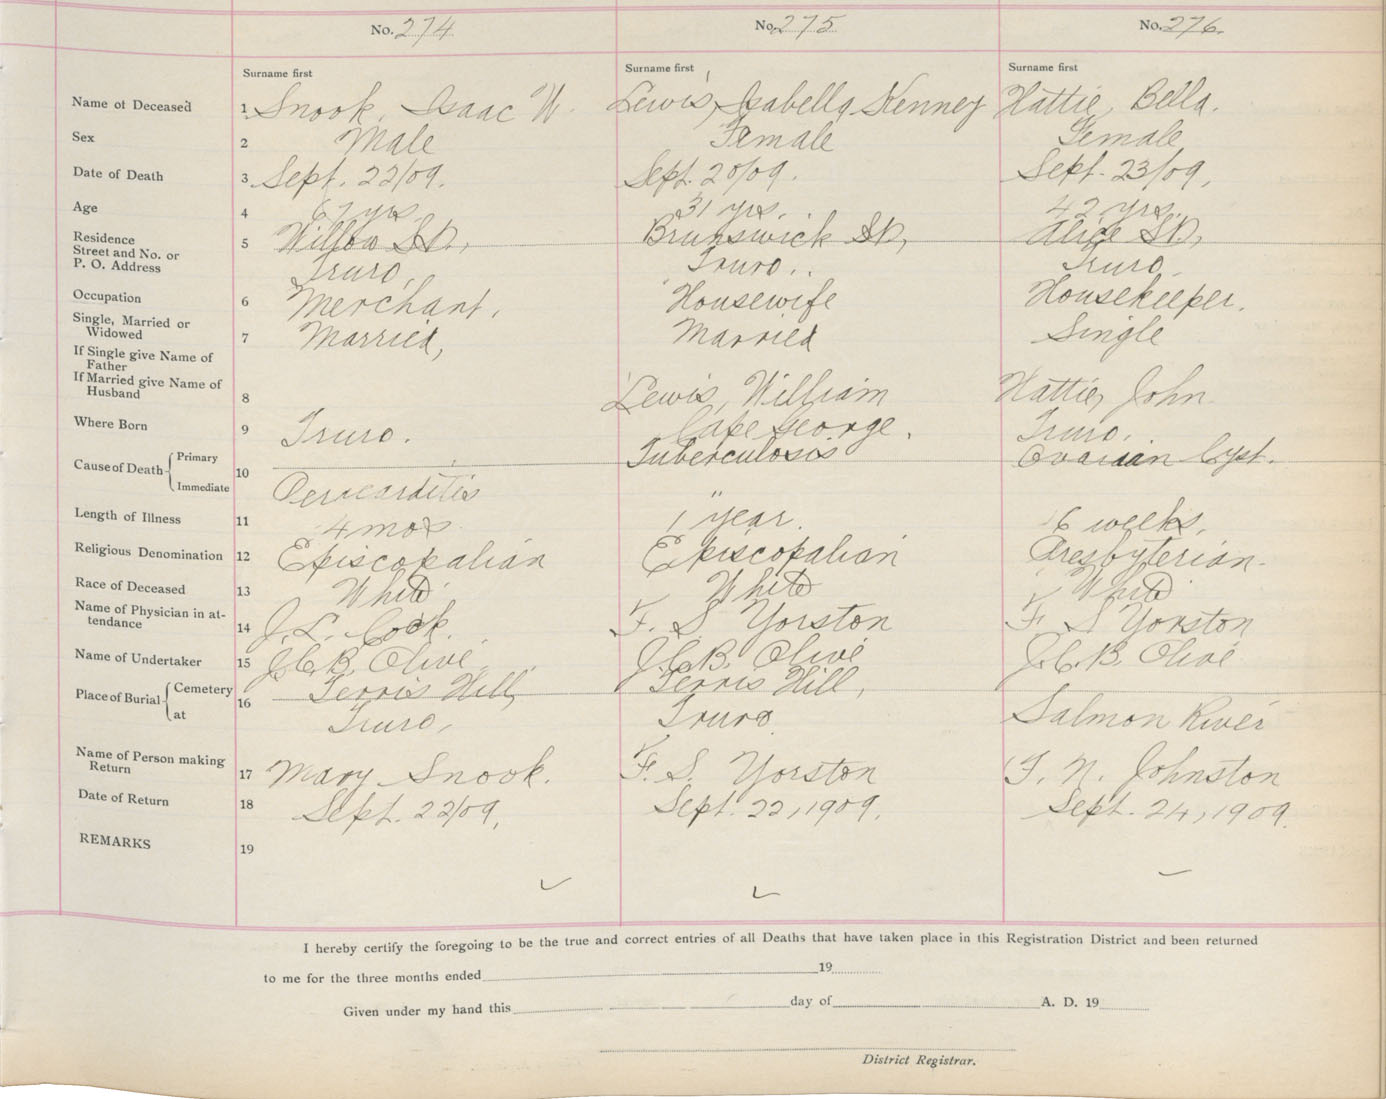 No. 274 No. 275 No. 276.
Surname first Surname first Surname first
Name of Deceased 1 Snook, Isaac W. Lewis, Isabella Kenney Hattie, Bella.
Sex 2 Male Female Female
Date of Death 3 Sept. 22/09. Sept. 20/09. Sept. 23/09.
Age 4 67 yrs. 31 yrs. 42 yrs.
Residence 5 Willow St., Brunswick St., Alice St.,
Street and No. or
P. O. Address Truro, Truro. Truro.
Occupation 6 Merchant. Housewife Housekeeper.
Single, Married or
Widowed 7 Married, Married Single
If Single give Name of
Father
If Married give Name of
Husband 8 Lewis, William Hattie, John
Where Born 9 Truro. Cape George. Truro.
Cause of Death { Primary 10 Tuberculosis Ovarian Cyst.
Immediate Pericarditis
Length of Illness 11 4 mos 1 year. 6 weeks.
Religious Denomination 12 Episcopalian Episcopalian Presbyterian.
Race of Deceased 13 White White White
Name of Physician in at-
tendance 14 J. L. Cook. F. S. Yorston F. S. Yorston
Name of Undertaker 15 J.C.B. Olive. J.C.B. Olive J.C.B. Olive
Place of Burial { Cemetery 16 Terris Hill, Terris Hill,
at Truro, Truro. Salmon River
Name of Person making
Return 17 Mary Snook. F. S. Yorston F. N. Johnston
Date of Return 18 Sept. 22/09. Sept. 22, 1909. Sept. 24, 1909.
REMARKS 19
I hereby certify the foregoing to be the true and correct entries of all Deaths that have taken place in this Registration District and been returned
to me for the three months ended 19
Given under my hand this day of A. D. 19
District Registrar.